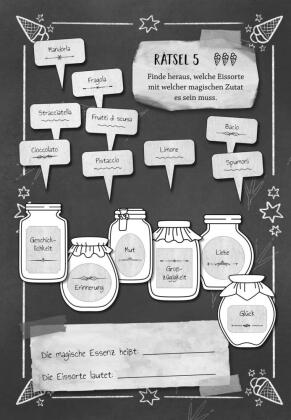 Mandorla
RÄTSEL 5
Fragola
Finde heraus, welche Eissorte
mit welcher magischen Zutat
es sein muss.
Stracciatella
Frutti di scusa
Bacio
Cioccolato
Pistaccio
Limone
Spumoni
Geschick-
lichkeit
Mut
Liebe
Groß-
zügigkeit
Erinnerung
Glück
Die magische Essenz heißt:
Die Eissorte lautet: